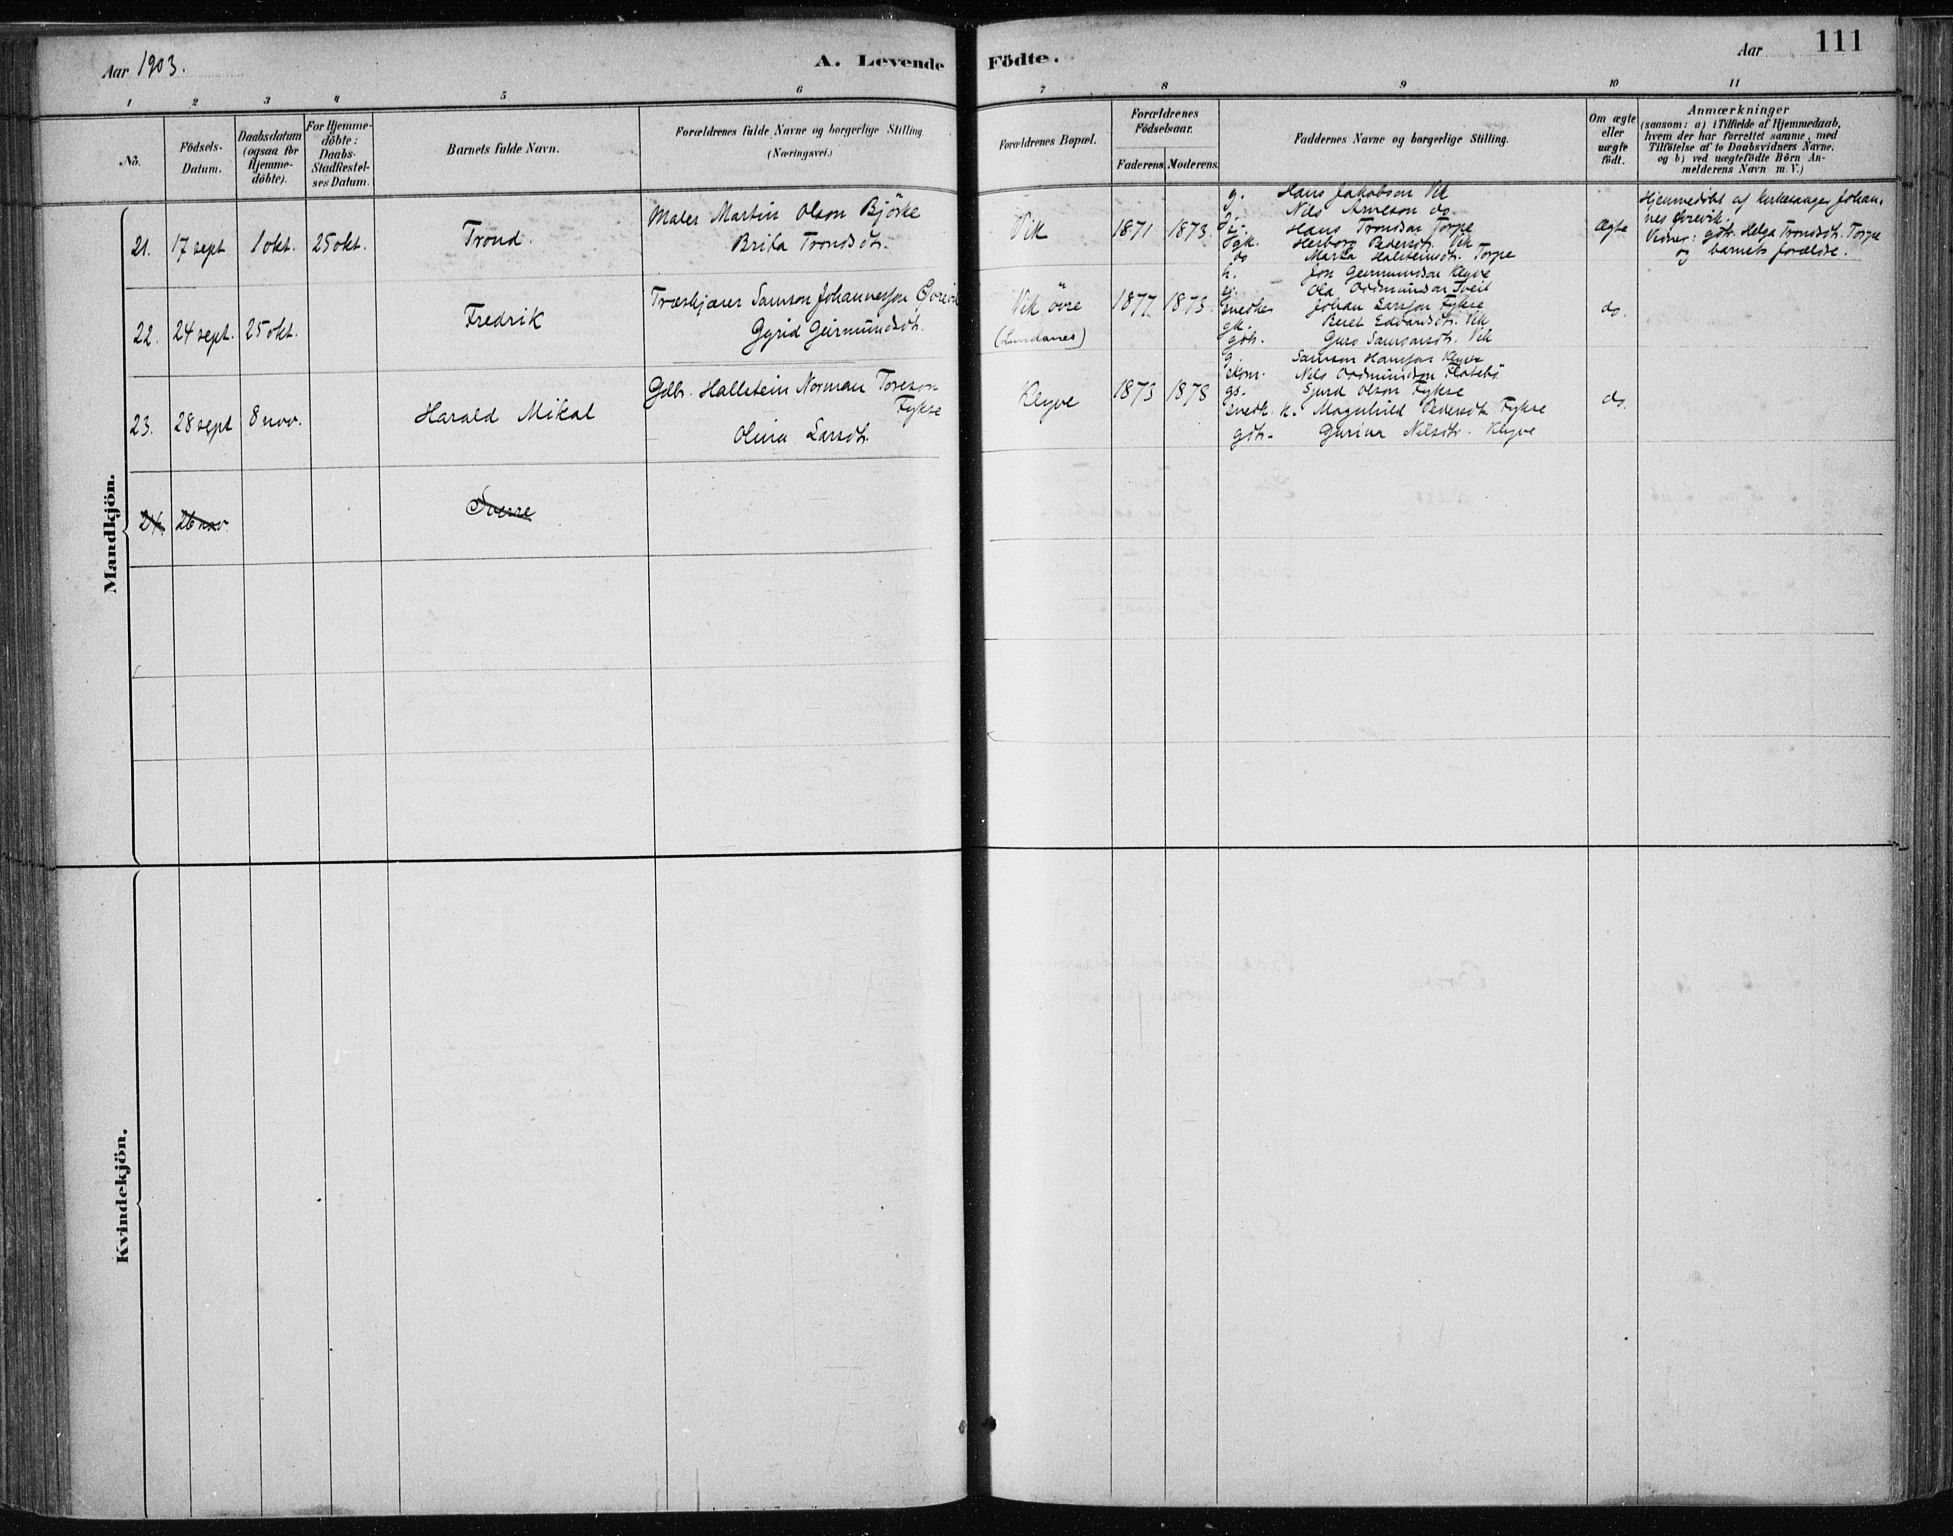 Aar 1903.
A. Levende Födte.
Aar
111
1 2 3 4 5 6 7 8 9 10 11
No.
Födsels-
Datum.
Daabsdatum
(ogsaa for
Hjemme-
döbte).
For Hjemme-
döbte:
Daabs-
Stadfæstel-
ses Datum.
Barnets fulde Navn.
Forældrenes fulde Navne og borgerlige Stilling
(Næringsvei.)
Forældrenes Bopæl.
Forældrenes
Födselsaar.
Faderens. Moderens.
Faddernes Navne og borgerlige Stilling.
Om ægte
eller
uægte
födt.
Anmærkninger
(saasom: a) i Tilfælde af Hjemmedaab,
hvem der har forrettet samme, med
Tilföielse af to Daabsvidners Navne.
og b) ved uægtefödte Börn An-
melderens Navn m. V.)
Mandkjön.
21. 17 sept 1 okt. 25 okt. Trond.
Maler Martin Olson Björke
Brita Trondsdtr.
Vik 1871 1873.
g. Hans Jakobson Vik
Nils Arneson do
Hans Trondson Torpe
gk. Herborg Pedersdtr. Vik
do Marta Halsteinsdtr. Torpe
Ægte
Hjemmedöbt af kirkesanger Johan-
nes Övrevik.
Vidner: gdtr. Helga Trondsdtr. Torpe
og barnets forældre.
22. 24 sept. 25 okt. Fredrik
Træskjærer Samson Johannesson Övrevik
Gyrid Geirmundsdtr.
Vik övre
(Lundanes)
1877 1873.
h. Jon Geirmundson Klyve
Ola Oddmundson Tveit
snedker Johan Larsson Fykse
gk. Beret Edvardsdtr. Vik
gdtr. Guro Samsonsdtr. Vik
do.
23. 28 sept 8 nov. Harald Mikal
Gdbr. Hallstein Norman Toreson
Fykse
Olina Larsdtr.
Klyve 1873 1878
g. Samson Hansson Klyve
skom. Nils Oddmundson Flatebö
gs. Sjurd Olson Fykse
snedk. k. Magnhild Pedersdtr. Fykse
gdtr. Gurina Nilsdtr. Klyve
do.
24. 26 nov. Sverre
Kvindekjön.